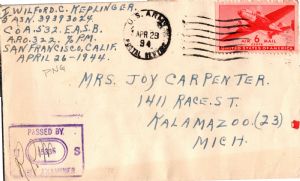 T. WILFORD. C. KEPLINGER.
ASN. 39393024.
CO A. 532. E.A.S.B.
A.P.O. 322. % P.M.
SAN FRANCISCO, CALIF.
APRIL-26-1944.
PNG
U.S. ARMY
APR 29
POSTAL SERVICE
AIR 6¢ MAIL
UNITED STATES OF AMERICA
MRS. JOY CARPENTER.
1411 RACE. ST.
KALAMAZOO. (23)
MICH.
PASSED BY
S
EXAMINER